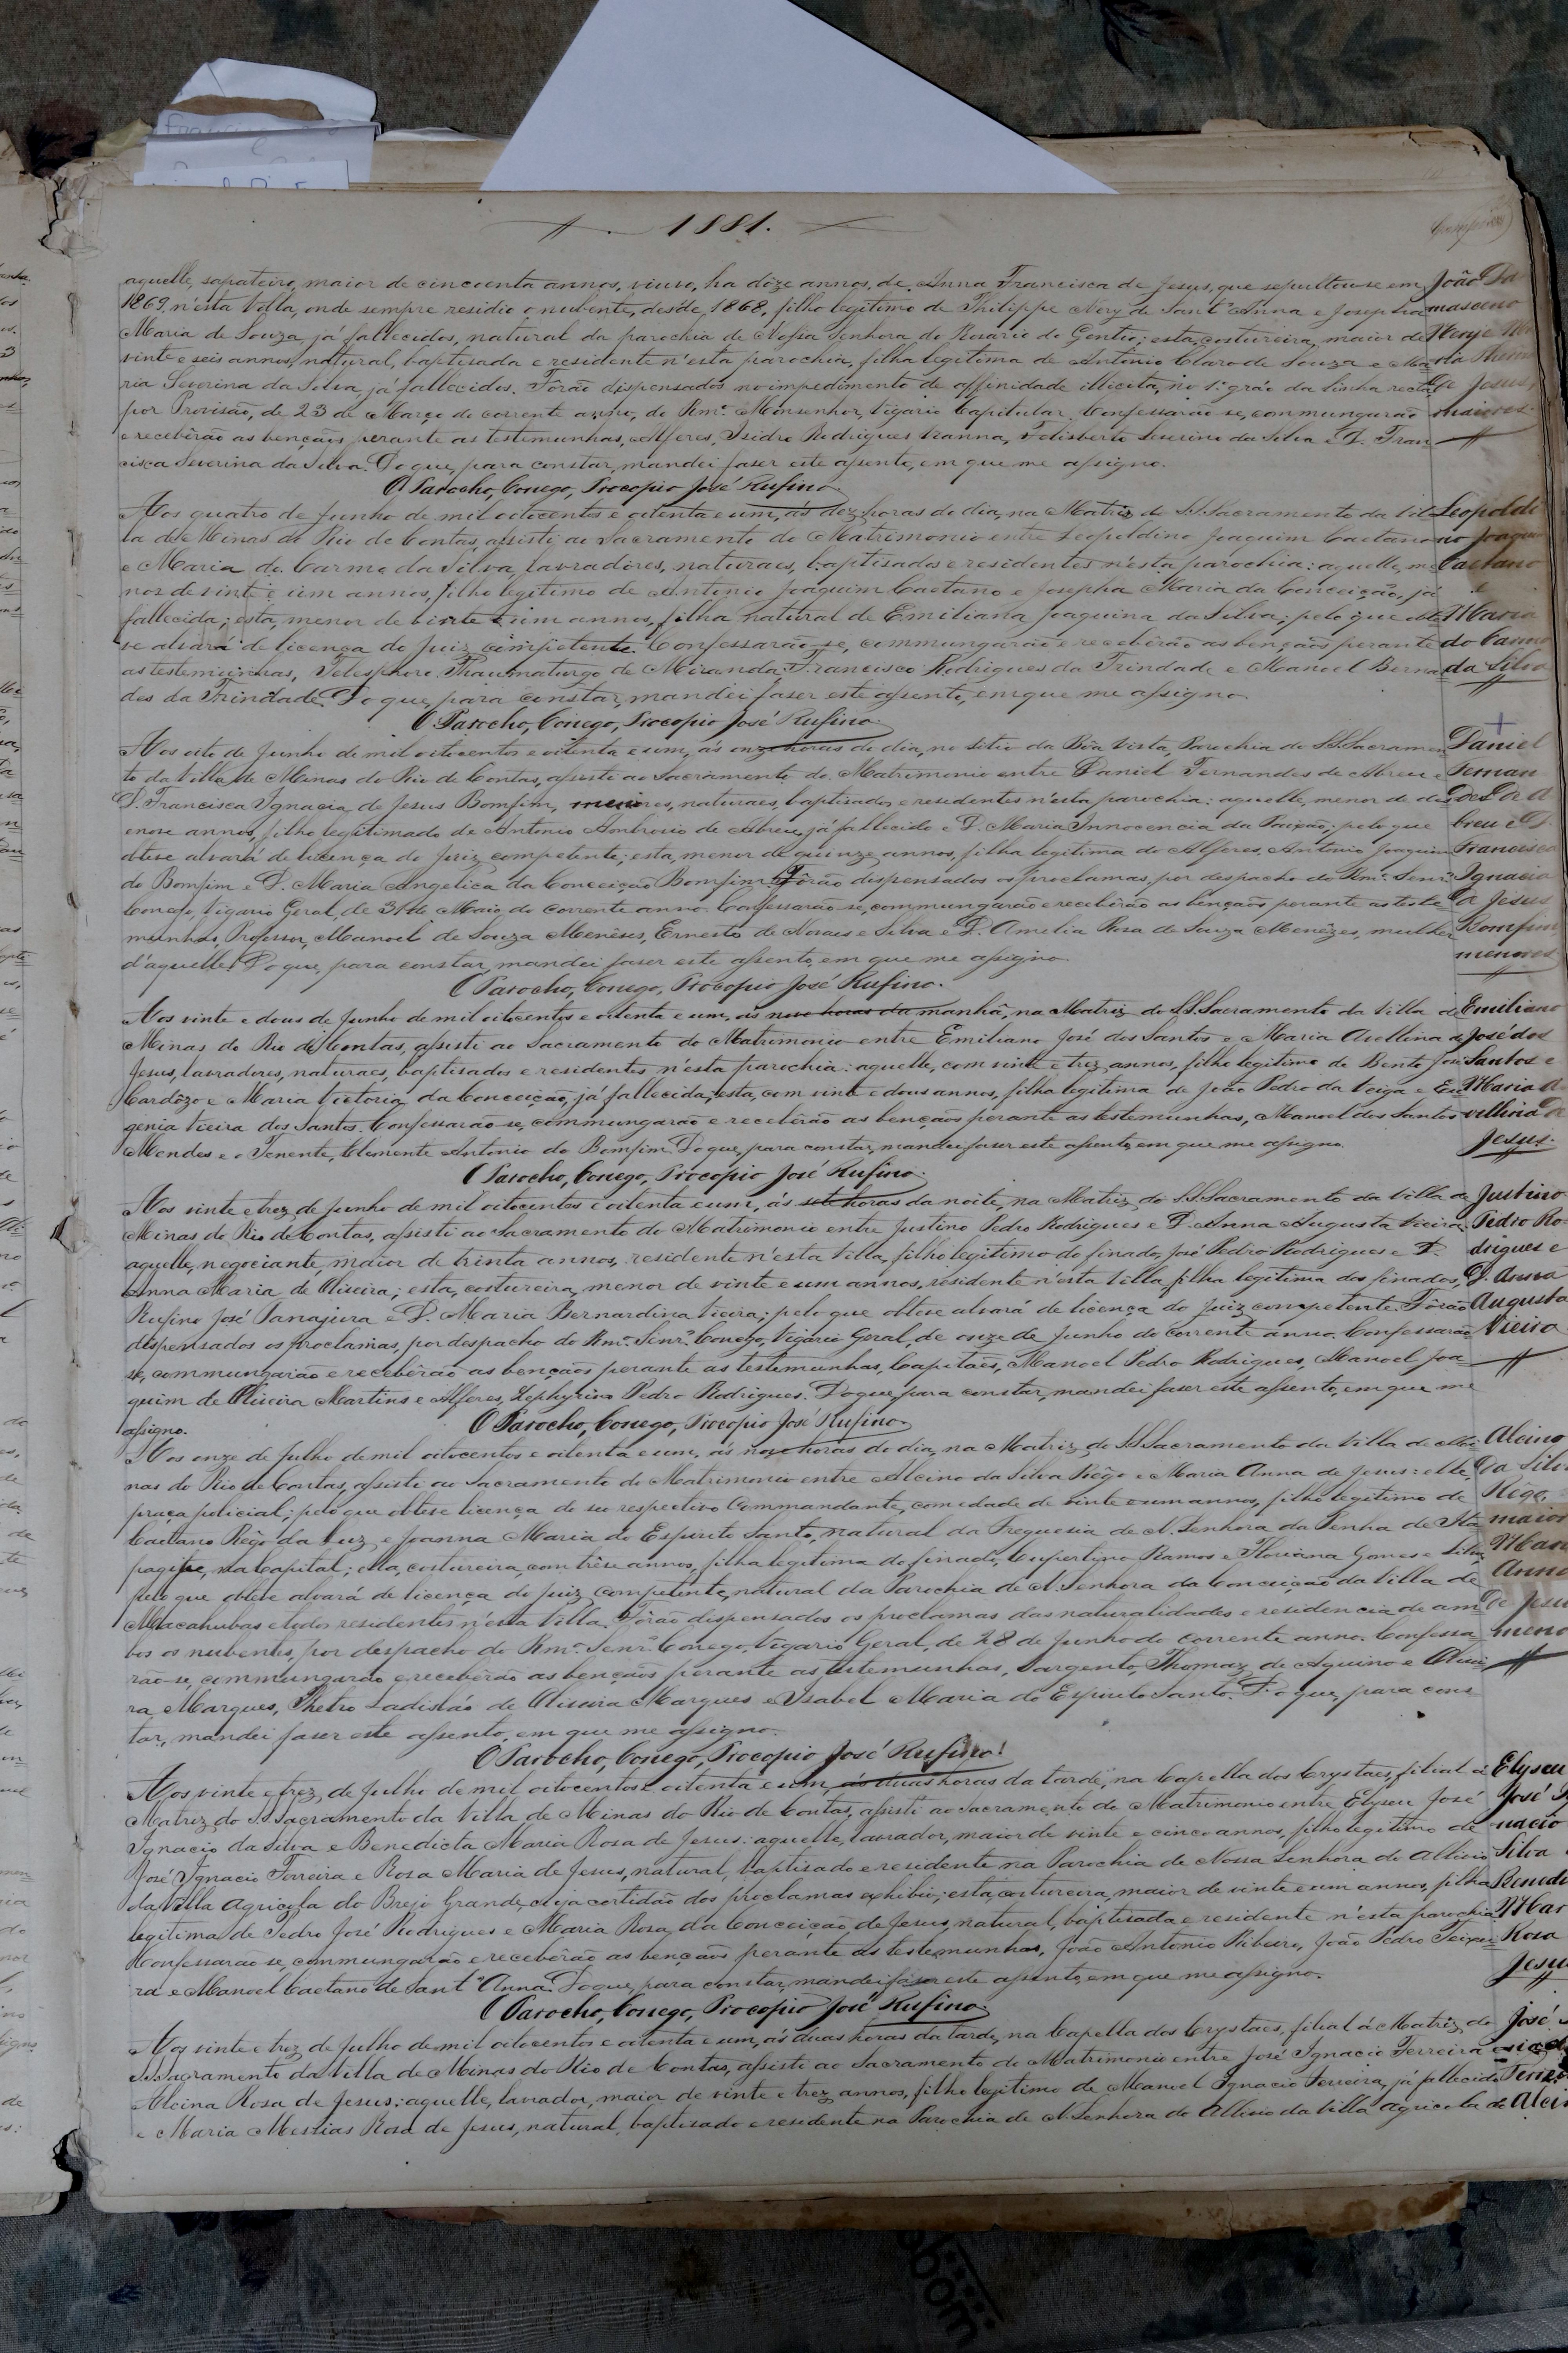 1881.
aquelle, sapateiro, maior de cincoenta annos, viuvo, ha dôze annos, de Anna Francisca de Jesus, que sepultou-se em
1869, n'esta Villa, onde sempre residio o nubente, desde 1868, filho legitimo de Philippe Nery de Sant'Anna e Josepha
Maria de Souza, já fallecidos, natural da parochia de Nossa Senhora do Rosario do Gentio; esta, costureira, maior de
vinte e seis annos, natural, baptisada e residente n'esta parochia, filha legitima de Antonio Claro de Souza e Ma
ria Severina da Silva, já fallecidos. Fôrão dispensados no impedimento de affinidade illicita, no 1º gráo da linha recta,
por Provisão, de 23 de Março do corrente anno, do Rmº Monsenhor, Vigario Capitular. Confessarão-se, commungarão
e recebêrão as bençãos perante as testemunhas, Alferes, Isidro Rodrigues Vianna, Felisberto Severino da Silva e D. Fran
cisca Severina da Silva. Do que, para constar, mandei faser este assento, em que me assigno.
João Da
masceno
de Jesus,
maiores.
O Parocho, Conego, Procopio José Rufino.
Aos quatro de Junho de mil oitocentos e oitenta e um, ás dez horas do dia, na Matriz do SS. Sacramento da Vil
la de Minas do Rio de Contas, assisti ao Sacramento do Matrimonio entre Leopoldino Joaquim Caetano
e Maria do Carmo da Silva, lavradôres, naturaes, baptisados e residentes n'esta parochia: aquelle, me
nor de vinte e um annos, filho legitimo de Antonio Joaquim Caetano e Josepha Maria da Conceição, já
fallecida; esta, menor de vinte e um annos, filha natural de Emiliana Joaquina da Silva; pelo que obte
ve alvará de licença do Juiz competente. Confessarão-se, commungarão e recebêrão as bençãos perante
as testemunhas, Telesphoro Thaumaturgo de Miranda, Francisco Rodrigues da Trindade e Manoel Berna
des da Trindade. Do que, para constar, mandei faser este assento, em que me assigno.
Leopoldi
no Joaquim
Caetano
e
Maria
do Carmo
da Silva
O Parocho, Conego, Procopio José Rufino.
Aos oito de Junho de mil oitocentos e oitenta e um, ás onze horas do dia, no sitio da Bôa Vista, Parochia do SS. Sacramen
to da Villa de Minas do Rio de Contas, assisti ao Sacramento do Matrimonio entre Daniel Fernandes de Abreu e
D. Francisca Ignacia de Jesus Bomfim, menores, naturaes, baptisados e residentes n'esta parochia: aquelle, menor de dez
enove annos, filho legitimado de Antonio Ambrosio de Abreu, já fallecido e D. Maria Innocencia da Paixão; pelo que
obteve alvará de licença do Juiz competente; esta, menor de quinze annos, filha legitima do Alferes, Antonio Joaquim
do Bomfim e D. Maria Angelica da Conceição Bomfim. Fôrão dispensados os proclamas, por despacho do Rmº Senrº
Conego, Vigario Geral, de 31 de Maio do corrente anno. Confessarão-se, commungarão e recebêrão as bençãos perante as teste
munhas, Professor, Manoel de Souza Menêses, Ernesto de Novaes e Silva e D. Amelia Rosa de Souza Menêzes, mulher
d'aquelle. Do que, para constar, mandei faser este assento, em que me assigno.
Daniel
Fernan
des de A
breu e D.
Francisca
Ignacia
de Jesus
Bomfim
menores
O Parocho, Conego, Procopio José Rufino.
Aos vinte e dous de Junho de mil oitocentos e oitenta e um, ás nove horas da manhã, na Matriz do SS. Sacramento da Villa de
Minas do Rio de Contas, assisti ao Sacramento do Matrimonio entre Emiliano José dos Santos e Maria Avellina de
Jesus, lavradores, naturaes, baptisados e residentes n'esta parochia: aquelle, com vinte e trez annos, filho legitimo de Bento José
Cardôzo e Maria Victoria da Conceição, já fallecida; esta, com vinte e dous annos, filha legitima de João Pedro da Veiga e Eu
genia Vieira dos Santos. Confessarão-se, commungarão e recebêrão as bençãos perante as testemunhas, Manoel dos Santos
Mendes e o Tenente, Clemente Antonio do Bomfim. Do que, para constar, mandei faser este assento, em que me assigno.
Emiliano
José dos
Santos e
Maria A
vellina de
Jesus.
O Parocho, Conego, Procopio José Rufino.
Aos vinte e trez de Junho de mil oitocentos e oitenta e um, ás sete horas da noite, na Matriz do SS. Sacramento da Villa de
Minas do Rio de Contas, assisti ao Sacramento do Matrimonio entre Justino Pedro Rodrigues e D. Anna Augusta Vieira:
aquelle, negociante, maior de trinta annos, residente n'esta Villa, filho legitimo do finado, José Pedro Rodrigues e D.
Anna Maria de Oliveira; esta, costureira, menor de vinte e um annos, residente n'esta Villa, filha legitima dos finados,
Rufino José Panajura e D. Maria Bernardina Vieira; pelo que obteve alvará de licença do Juiz competente. Fôrão
dispensados os proclamas, por despacho do Rmº Senrº Conego, Vigario Geral, de onze de Junho do corrente anno. Confessarão
se, commungarão e recebêrão as bençãos perante as testemunhas, Capitães, Manoel Pedro Rodrigues, Manoel Joa
quim de Oliveira Martins e Alferes, Zephyrino Pedro Rodrigues. Do que, para constar, mandei faser este assento, em que me
assigno.
Justino
Pedro Ro
drigues e
D. Anna
Augusta
Vieira
O Parocho, Conego, Procopio José Rufino.
Aos onze de Julho de mil oitocentos e oitenta e um, ás nove horas do dia, na Matriz do SS. Sacramento da Villa de Mi
nas do Rio de Contas, assisti ao Sacramento do Matrimonio entre Alcino da Silva Rêgo e Maria Anna de Jesus: elle,
praça policial; pelo que obteve licença do seu respectivo Commandante, com idade de vinte e um annos, filho legitimo de
Caetano Rêgo da Luz e Joanna Maria do Espirito Santo, natural da Freguesia de N. Senhora da Penha de Ita
pagipe, na Capital; ella, costureira, com trêse annos, filha legitima do finado, Cupertino Ramos e Floriana Gomes e Silva,
pelo que obteve alvará de licença do Juiz competente, natural da Parochia de N. Senhora da Conceição da Villa de
Macahubas e todos residentes n'esta Villa. Fôrão dispensados os proclamas das naturalidades e residencia de am
bos os nubentes, por despacho do Rmº Senrº Conego, Vigario Geral, de 28 de Junho do corrente anno. Confessa
rão-se, commungarão e recebêrão as bençãos perante as testemunhas, Sargento, Thomaz de Aquino e Olivei
ra Marques, Phetro Ladisláo de Oliveira Marques e Isabel Maria do Espirito Santo. Do que, para cons
tar, mandei faser este assento, em que me assigno.
Alcino
da Silva
Rêgo,
maior
Maria
Anna
de Jesus
menor
O Parocho, Conego, Procopio José Rufino.
Aos vinte e trez de Julho de mil oitocentos e oitenta e um, ás duas horas da tarde, na Capella dos Crystaes, filial á
Matriz do SS. Sacramento da Villa de Minas do Rio de Contas, assisti ao Sacramento do Matrimonio entre Elyseu José
Ignacio da Silva e Benedicta Maria Rosa de Jesus: aquelle, lavrador, maior de vinte e cinco annos, filho legitimo de
José Ignacio Ferreira e Rosa Maria de Jesus, natural, baptisado e residente na Parochia de Nossa Senhora do Allivio
da Villa Agricola do Brejo Grande, cuja certidão dos proclamas exhibio; esta, costureira, maior de vinte e um annos, filha
legitima de Pedro José Rodrigues e Maria Rosa da Conceição de Jesus, natural, baptisada e residente n'esta parochia.
Confessarão-se, commungarão e recebêrão as bençãos perante as testemunhas, João Antonio Ribeiro, João Pedro Teixei
ra e Manoel Caetano de Sant'Anna. Do que, para constar, mandei faser este assento, em que me assigno.
Elyseu
José Ig
nacio
Silva
Benedi
Mar
Rosa
Jesus
O Parocho, Conego, Procopio José Rufino.
Aos vinte e trez de Julho de mil oitocentos e oitenta e um, ás duas horas da tarde, na Capella dos Crystaes, filial á Matriz do
SS. Sacramento da Villa de Minas do Rio de Contas, assisti ao Sacramento do Matrimonio entre José Ignacio Ferreira e
Alcina Rosa de Jesus: aquelle, lavrador, maior de vinte e trez annos, filho legitimo de Manoel Ignacio Ferreira, já fallecido
e Maria Messias Rosa de Jesus, natural, baptisado e residente na Parochia de N. Senhora do Allivio da Villa Agricola do
José
Alci